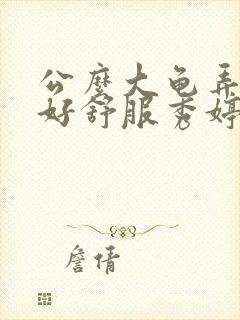 公麽大龟弄
好舒服秀婷
詹倩